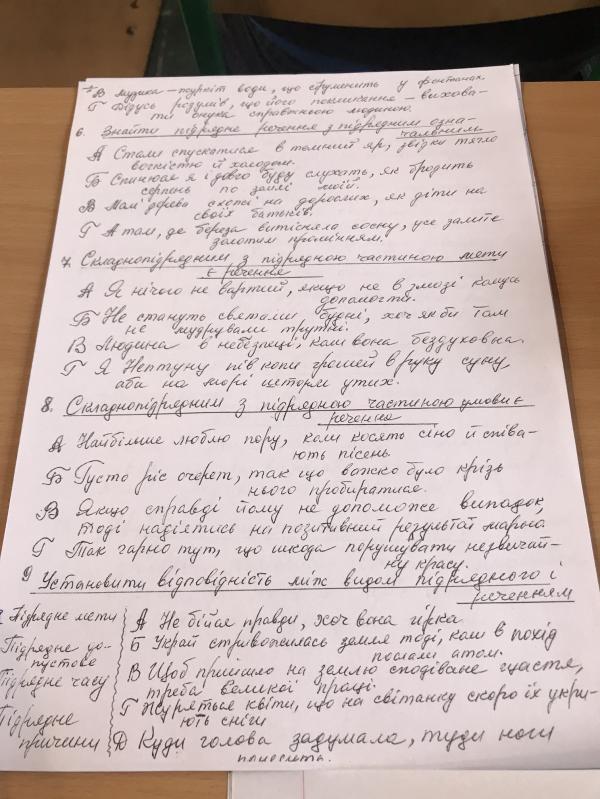 В Музика – журкіт води, що струменить у фонтанах.
Г Дідусь розумів, що його покликання – вихова-
ти онука справжньою людиною.
6. Знайти підрядне речення з підрядним озна-
чальним
А Стали спускатися в темний яр, звідки тягло
вогкістю й холодом.
Б Спинюся я і довго буду слухать, як бродить
серпень по землі моїй.
В Малі дерева схожі на дорослих, як діти на
своїх батьків.
Г А там, де береза витісняла сосну, усе залите
золотим промінням.
7. Складнопідрядним з підрядною частиною мети
є речення
А Я нічого не вартий, якщо не в змозі комусь
допомогти.
Б Не стануть святами будні, хоч як би там
не мудрували трутні.
В Людина в небезпеці, коли вона бездуховна.
Г Я Нептуну півкопи грошей в руку суну,
аби на морі шторм утих.
8. Складнопідрядним з підрядною частиною умови є
речення
А Найбільше люблю пору, коли косять сіно й співа-
ють пісень.
Б Густо ріс очерет, так що важко було крізь
нього пробиратися.
В Якщо справді йому не допоможе випадок,
тоді надіятись на позитивний результат марно
Г Так гарно тут, що шкода порушувати незвичай-
ну красу.
9 Установити відповідність між видом підрядного і
реченням
Підрядне мети
Підрядне до-
пустове
Підрядне часу
Підрядне
причини
А Не бійся правди, хоч вона гірка
Б Украй стривожилась земля тоді, коли в похід
послали атом.
В Щоб прийшло на землю сподіване щастя,
треба великої праці.
Г Журяться квіти, що на світанку скоро їх укри-
ють сніги
Д Куди голова задумала, туди ноги